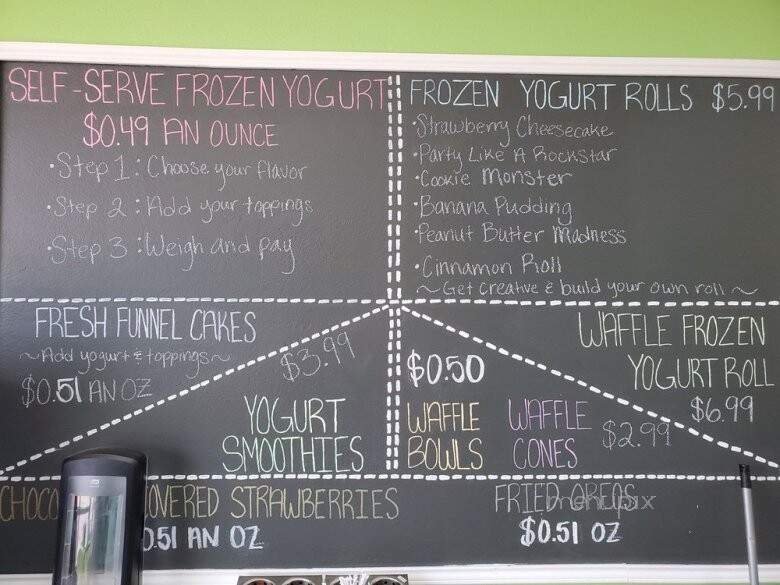 SELF-SERVE FROZEN YOGURT
$0.49 AN OUNCE
• Step 1: Choose your flavor
• Step 2: Add your toppings
• Step 3: Weigh and pay
FROZEN YOGURT ROLLS $5.99
• Strawberry Cheesecake
• Party Like A Rockstar
• Cookie Monster
• Banana Pudding
• Peanut Butter Madness
• Cinnamon Roll
~ Get creative & build your own roll ~
FRESH FUNNEL CAKES
~Add yogurt & toppings~
$0.51 AN OZ
$3.99
YOGURT
SMOOTHIES
$0.50
WAFFLE
BOWLS
WAFFLE
CONES
$2.99
WAFFLE FROZEN
YOGURT ROLL
$6.99
CHOCO OVERED STRAWBERRIES
0.51 AN OZ
FRIED OREOS
$0.51 OZ
menupix